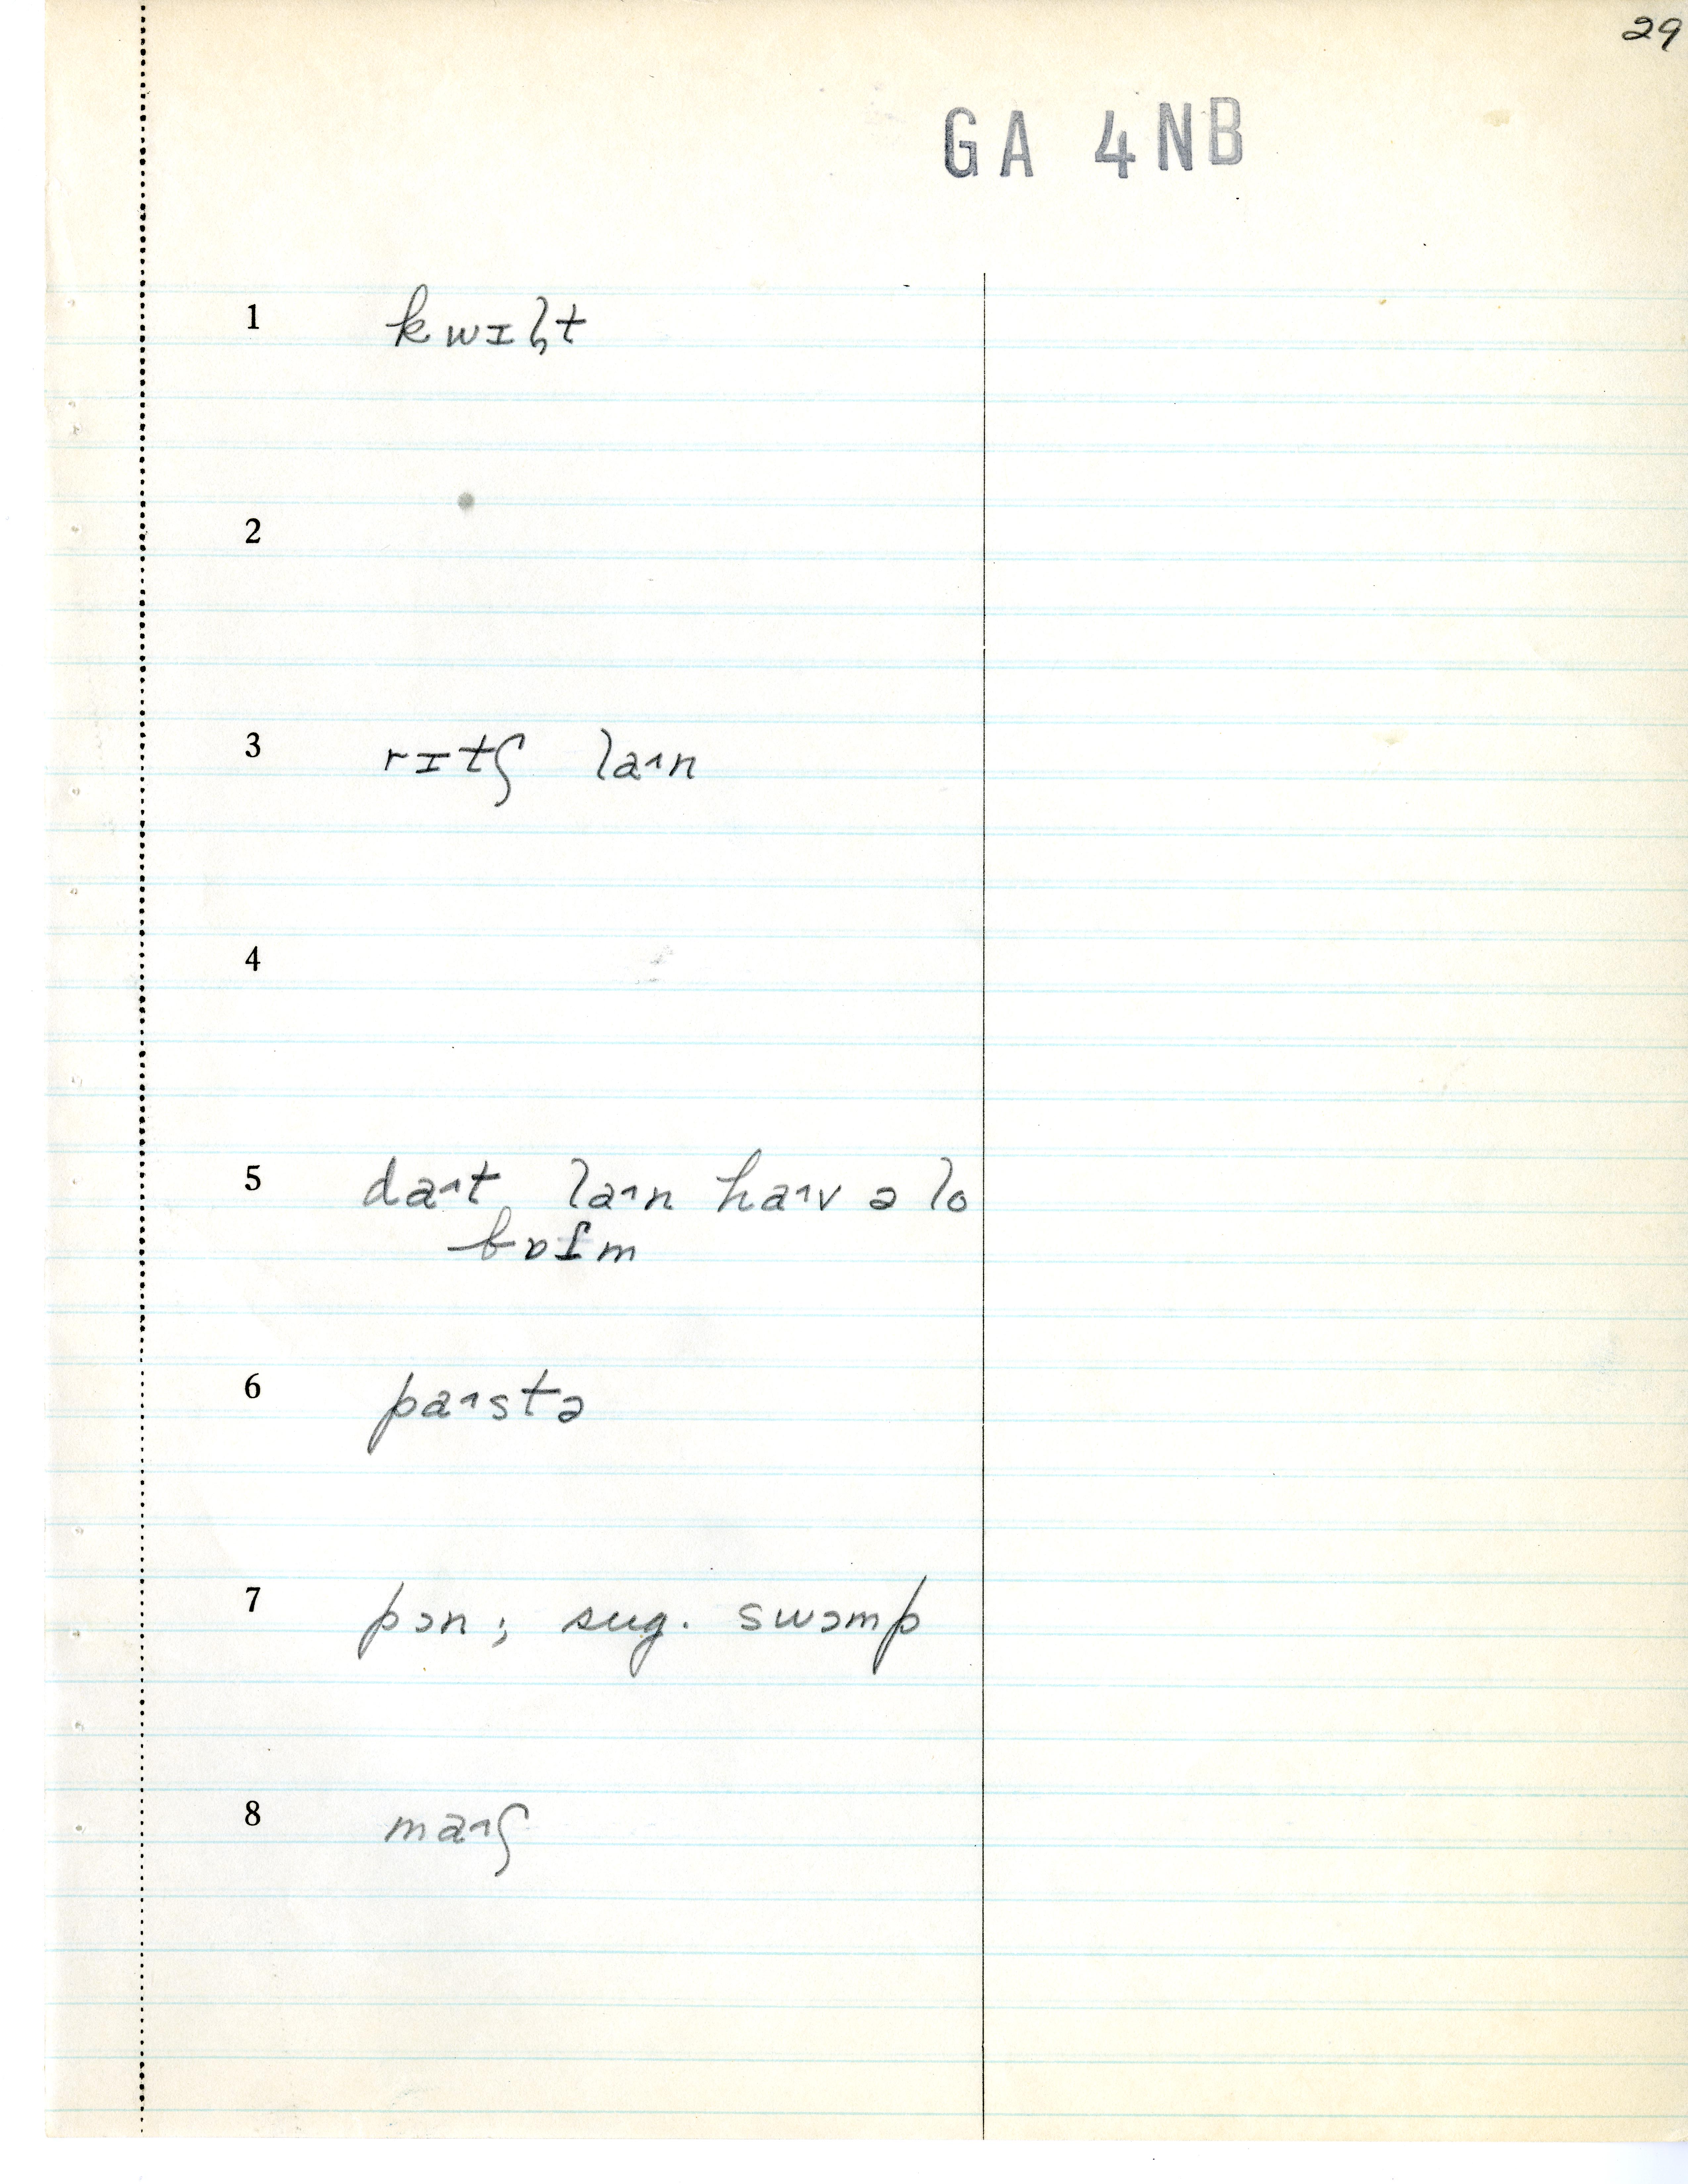 29
GA 4NB
1 kwɪl̡t
2
3 rɪtʃ la˔n
4
5 da˔t la˔n ha˔v ə lo
bɒʃm
6 pa˔stə
7 pɔn; sug. swɔmp
8 ma˔ʃ